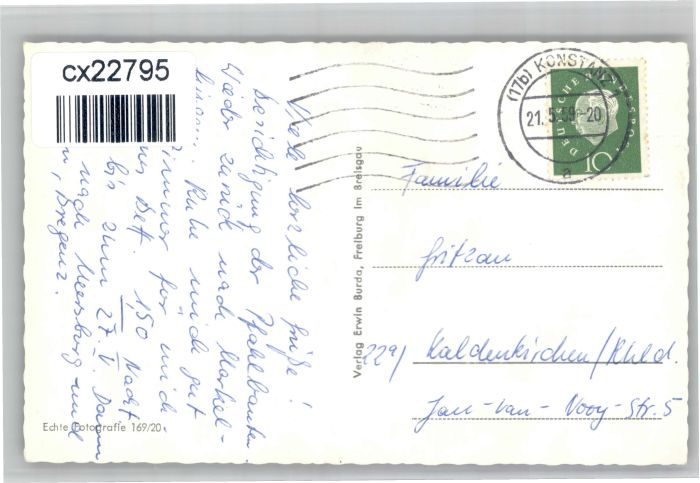 cx22795
Viele herzliche Grüße!
Besichtigung der Pfahlbauten.
Wieder zurück nach Markel-
Ruhe mich gut
Zimmer für mich
Bett. 1,50 Nacht
bis zum 27. V. Dann
nach Meersburg und
Bregenz.
Echte Fotografie 169/20
Verlag Erwin Burda, Freiburg im Breisgau
(17b) KONSTANZ
21.5.59.-20
a
DEUTSCHE BUNDESPOST
10
Familie
Fritzau
22a) Kaldenkirchen/Rhld.
Jan-van-Vooy-Str. 5